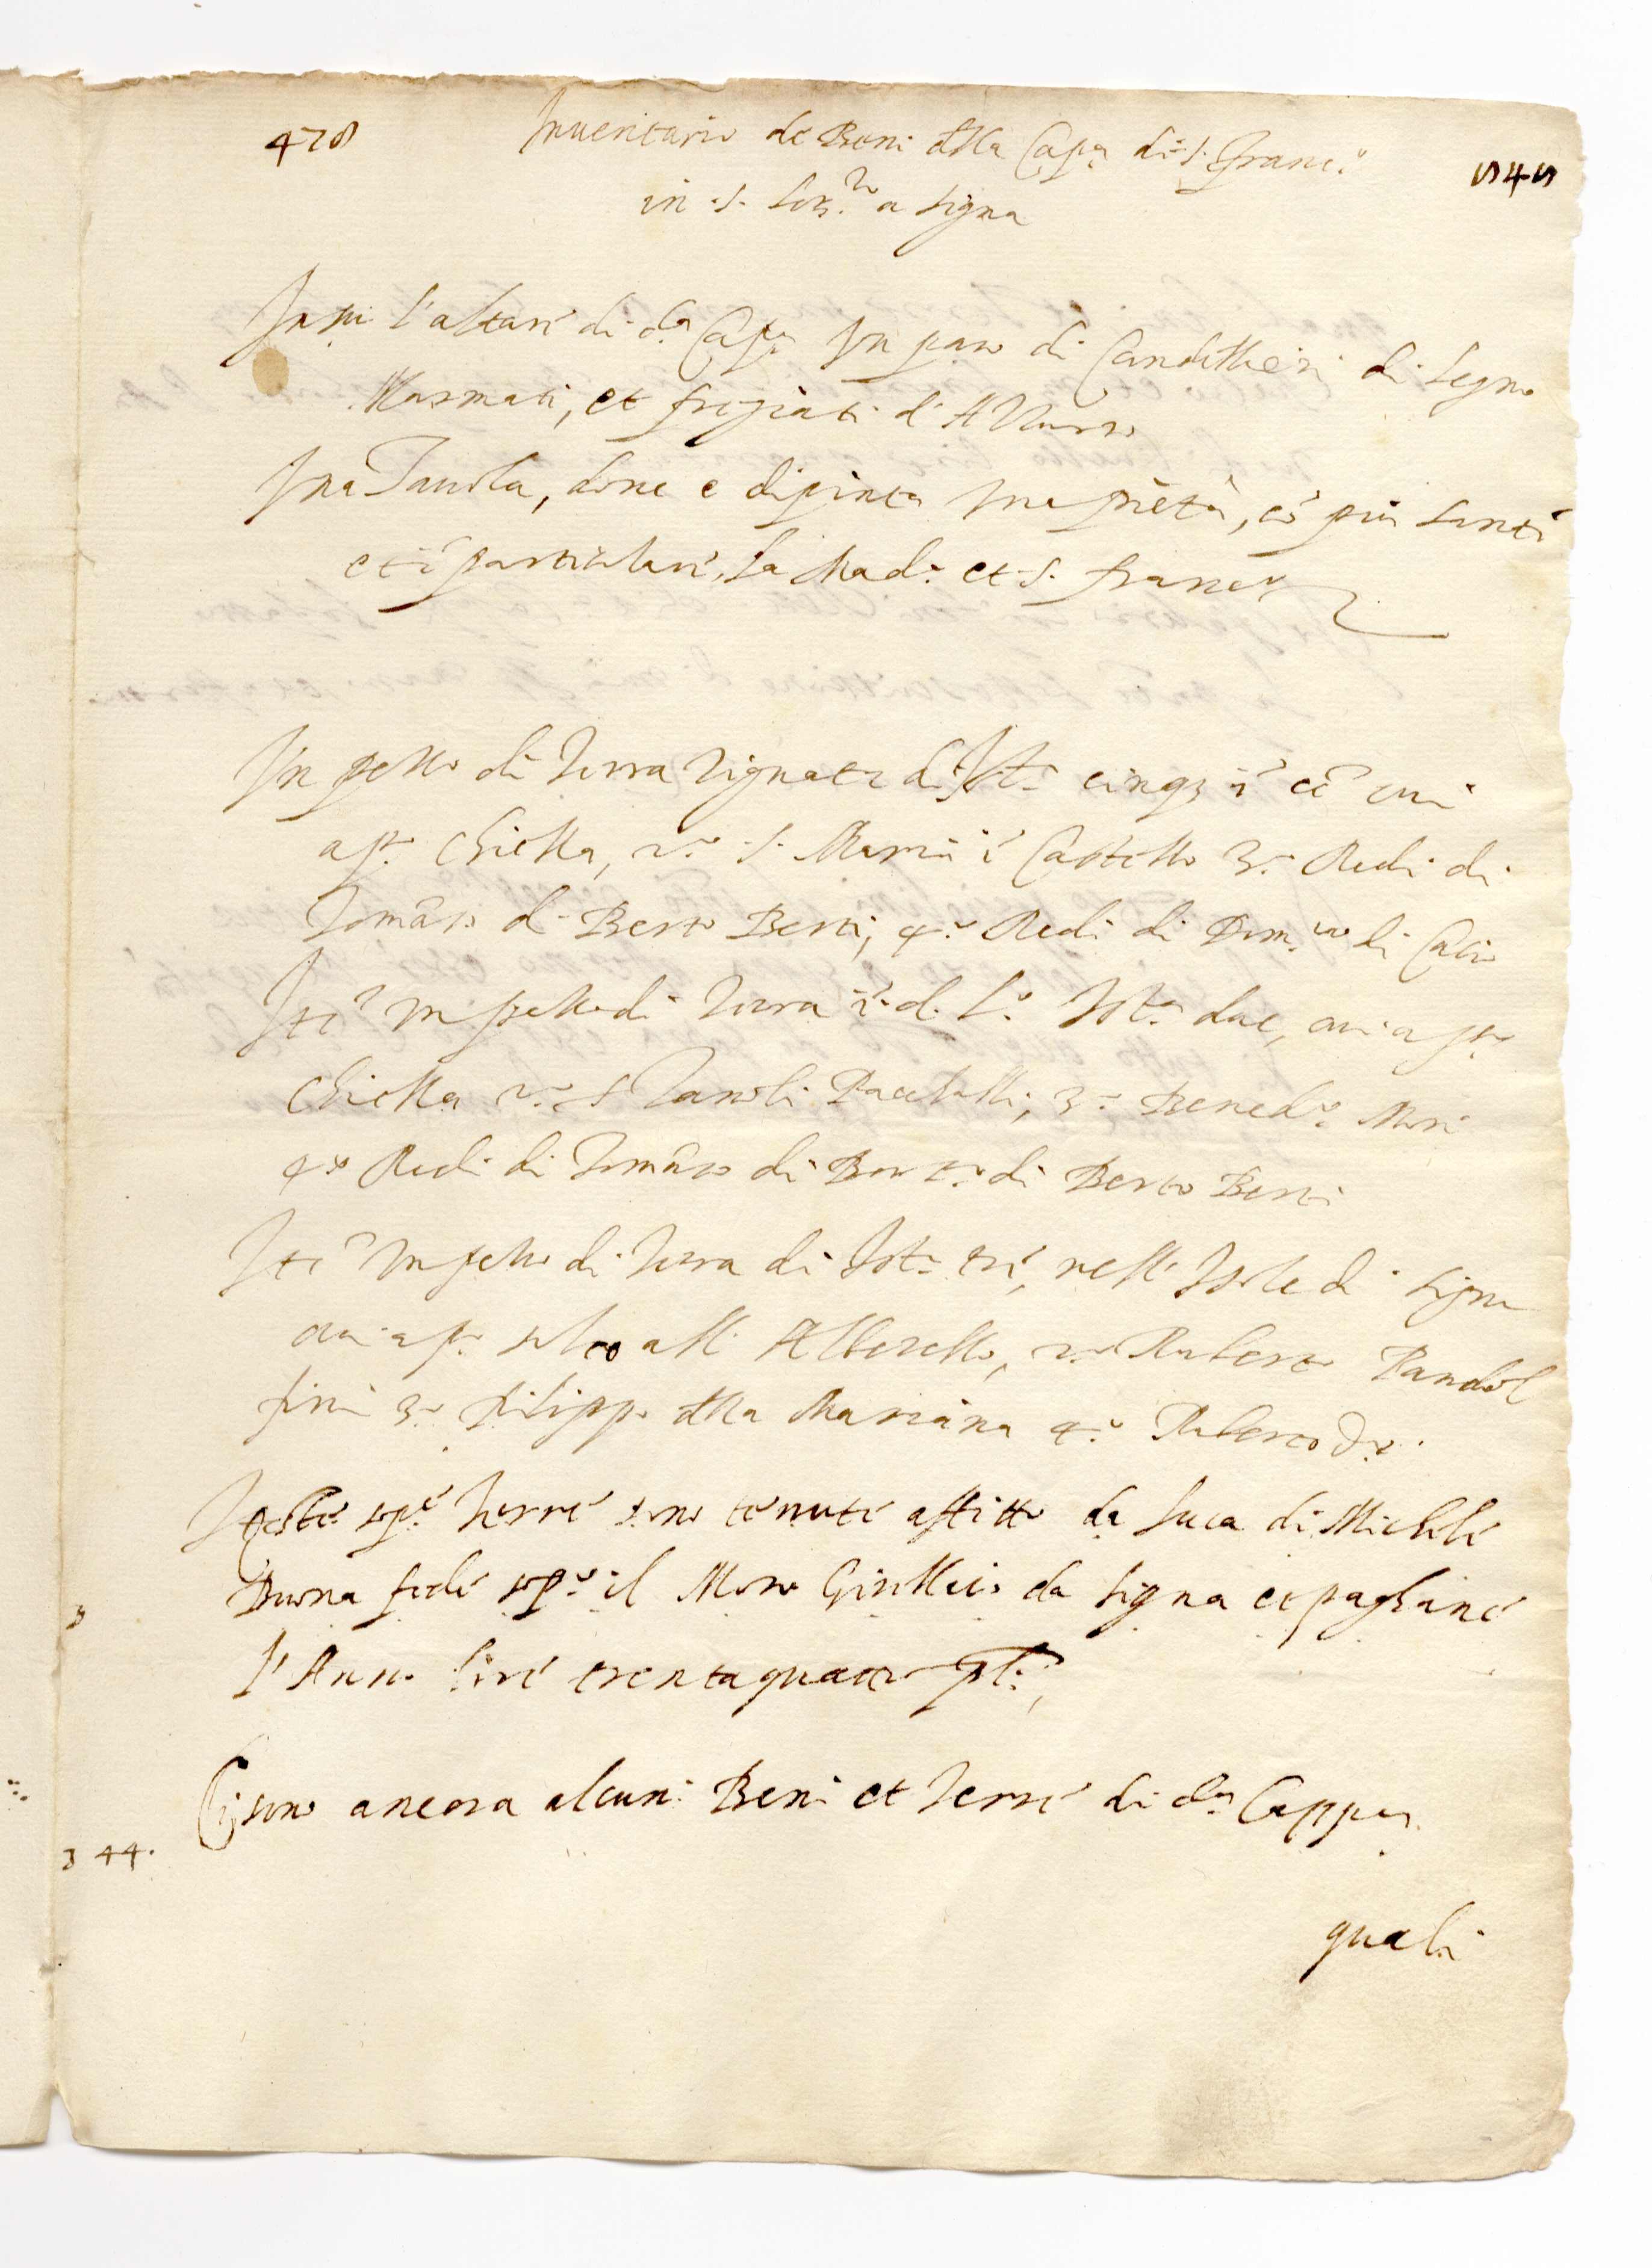 478
Inventario de Beni della Cap.a di S. Franc.o
545
in S. Lor.zo a Signa
In su l'altare di d.a Cap.a Un paro di Candellieri di Legno
Marmati, et fregiati d'Allouro
Una Tavola, dove è dipinta una pietà, cō più Santi
et ī particulare, la Mad.a et S. Franc.o
Un pezzo di Terra vignata di st.a cinq3 ī cā cui
a p.o Chiesa, 2.o S. Maria ī Castello 3.o Redi di
Tomāso di Berto Berti, 4.o Redi di Dom.co di
Itē un pezzo di Terra ī d. L.o st.a due, cui a p.o
Chiesa 2.o S Zanobi 3.o Bened.o Mori
4.o Redi di Tomāso di di Berto Berti
Itē un pezzo di Terra di st.a tre, nell' Isole di Signa
cui a p.o all' Alberello, 2.o Ruberto Pandol
fini 3.o Filippo della Mariana 4.o Ruberto d.o
Queste sop.e Terre sono tenute affitto da Luca di Michele
Buona fede sop.o il Moro da Signa et paghane
l'Anno lire trentaquattro p.li
Ci sono ancora alcuni Beni et Terre di d.a Cappa
3 44.
quali